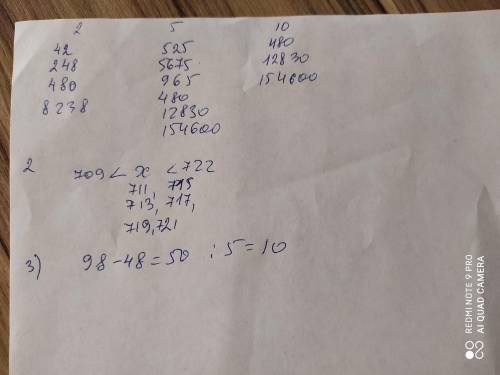 2 5 10
42 525 480
248 5675. 12830
480 965 154600
8238 480
12830
154600
2 709 < x < 722
711, 715
713, 717,
719, 721
3) 98-48=50 :5=10
REDMI NOTE 9 PRO
AI QUAD CAMERA